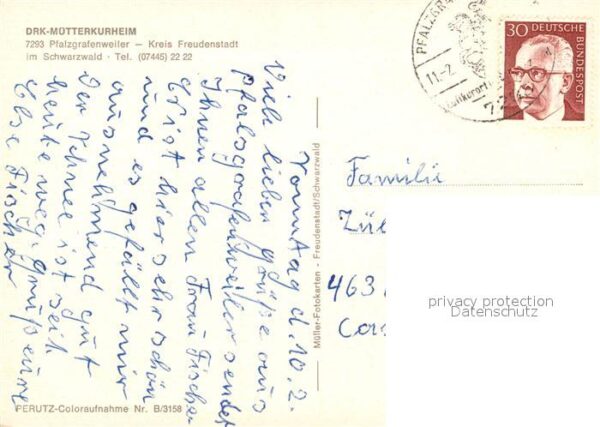 DRK-MÜTTERKURHEIM
7293 Pfalzgrafenweiler — Kreis Freudenstadt
im Schwarzwald · Tel. (07445) 22 22
Sonntag d. 10. 2.
Viele lieben Grüße aus
Pfalsgrafenweiler sendet
Ihnen allen Frau Fischer
Es ist hier sehr schön
und es gefällt mir
ausnehmend gut
Der Schnee ist seit
heute weg. grüß eure
Else Fischer
PERUTZ-Coloraufnahme Nr. B/3158
Müller-Fotokarten - Freudenstadt/Schwarzwald
PFALZGRA
11.-2.
Luftkurort
72
30 DEUTSCHE
BUNDESPOST
Familie
Zül
463
Cas
privacy protection
Datenschutz